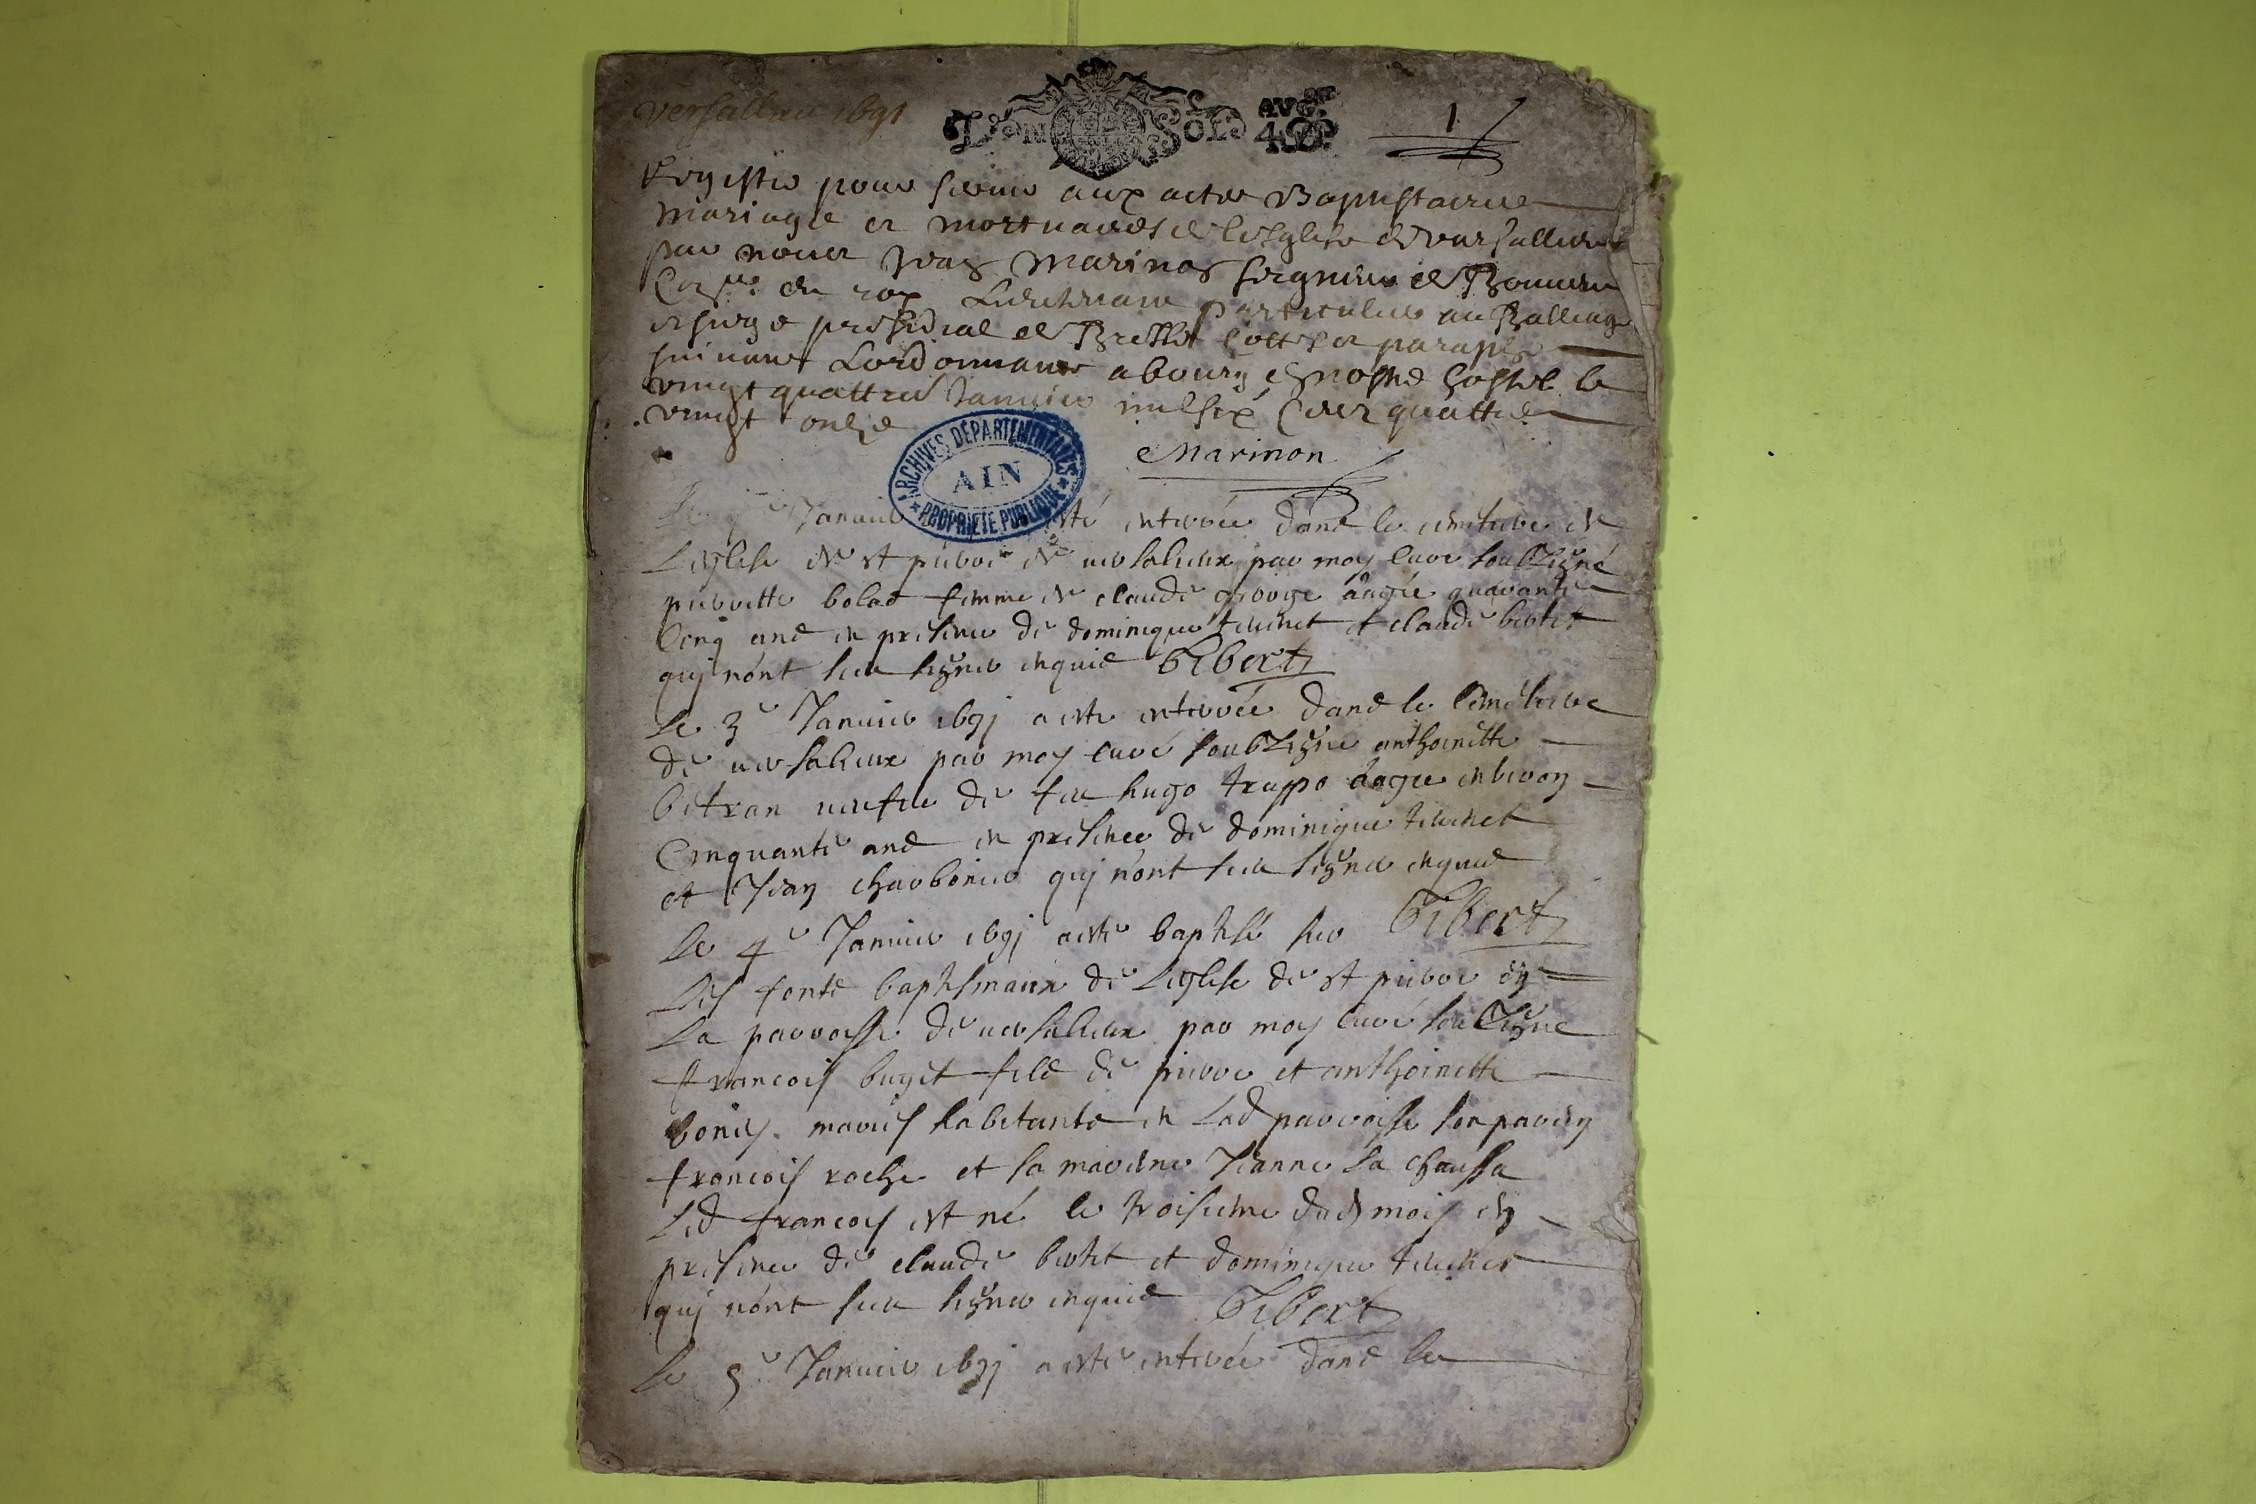 Versallieu 1691
Lyon Sols AVG.on 4.D. 1
Registre pour servir aux actes Baptistaires
Mariage et mortuaires de lesglise de versallieu
par nous Jean Marinon seigneur de
Conser du roy Lieutenant particulier au Balliage
et siege presidial de Bresse Cotté et paraphé
suivant Lordonnance a bourg en nostre hostel le
vingt quattre Janvier mil six Cent quattre
vingt onze
Marinon
Janvier esté enterrée dans le cimetiere de
Leglise de st pierre de versalieux par moy Curé soubsigné
pierrette bolas femme de claude george aagée quarante
Cinq ans en presence de dominique tevenet et claude bertet
qui nont sceu signer enquis Gibert
Le 3e Janvier 1691 a esté enterrée dans le Cimetiere
de versalieux par moy curé soubsigné anthoinette
betran veufve de feu hugo trappo aagée environ
Cinquante ans en presence de dominique tevenet
et Jean charbonier qui nont sceu signer enquis
Gibert
Le 4e Janvier 1691 a esté baptisé sur
Les fonts baptismaux de Leglise de st pierre en
La parroisse de versalieux par moy Curé soubsigné
francois buget fils de pierre et anthoinette
mariés habitants en Lad parroisse son parein
francois roche et sa mareine Jeanne La chaussa
Led francois est né le troisieme dud mois en
presence de claude bertet et dominique tevenet
qui nont sceu signer enquis Gibert
Le 5e Janvier 1691 a esté enterrée dans le
ARCHIVES DÉPARTEMENTALES
AIN
PROPRIÉTÉ PUBLIQUE